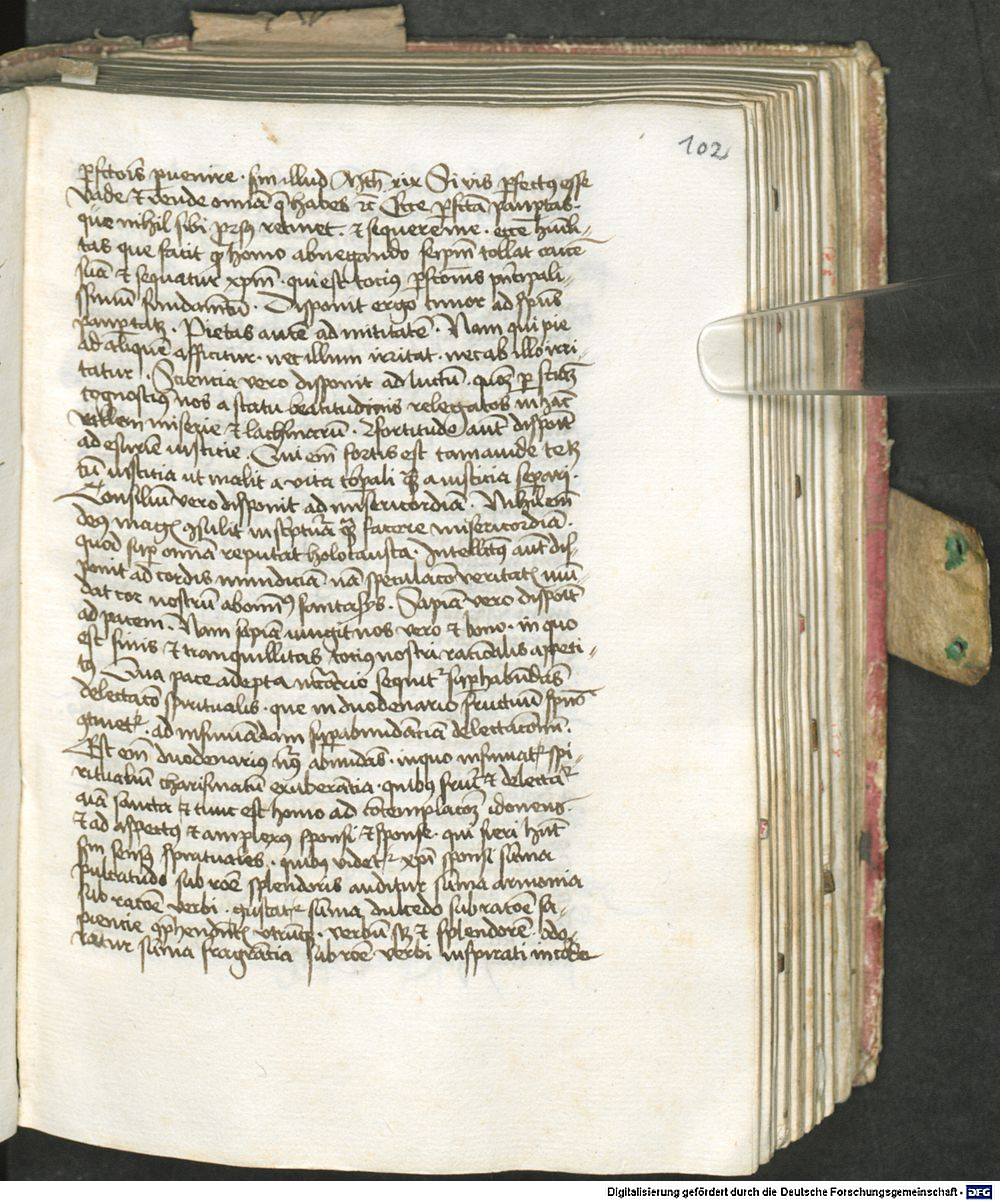 102
ꝑfcōis ꝑuenire · scdm illud Mth̄ xix Si vis ꝑfectus esse
vade et vende omnia q̄ habes etc̄ Ecce ꝑfcta pauꝑtas ·
que nihil sibi ꝓrsus retinet · et sequere me · ecce humili-
tas que facit ꝙ homo abnegando seipm̄ tollat crucē
suā et sequatur xp̄m · qui est totius ꝑfcōnis pͥncipali-
ssimū fundamētū · Disponit ergo timor ad spūs
pauꝑtatē · Pietas autē ad mititatē · Nam qui pie
ad aliquē afficitur · nec illum irritat · nec ab illo irri-
tatur · Scientia vero disponit ad luctū · qm̄ ꝑ sciam
cognoscimus nos a statu beatitudinis relegatos in hāc
vallem miserie et lachrimarū · Fortitudo aut disponit
ad esuriē iusticie · Qui em̄ fortis est tam auide
iusticia ut malit a vita corꝑali qͣm a iusticia seꝑari ·
Consiliū vero disponit ad misericordiā · Nihil em̄
deus magis ꝯsulit in scriptura qͣm facere misericordiā ·
quod suꝑ omnia reputat holocausta · Intellectus aut dis-
ponit ad cordis mundiciā nā speculacō veritatis mū-
dat cor nostrū ab omībus fantasijs · Sapiā vero disponit
ad pacem · Nam sapiā iungit nos vero et bono · in quo
est finis et tranquillitas totius nostri racionalis appeti-
tus Qua pace adepta necessario sequitur suꝑhabundās
delectacō spiritualis · que in duodenario fructuū spūs
ꝯtinetur · ad insinuandam suꝑabundanciam delectacionum ·
Est em̄ duodenarius nūs abundās · in quo insinuatur spi-
ritualiū charismatū exuberātia · quibus fruitur et delectatur
aīa sancta et tunc est homo ad cōtemplacōē idoneus
et ad aspectus et amplexus sponsi et sponse · qui fieri hn̄t
scdm sensus spirituales · quibus videtur xp̄i sponsi sūma
pulcritudo sub rōē splendoris auditur sūma armonia
sub ratōē verbi · gustatur sūma dulcedo sub ratōē sa-
piencie ꝯprehendentis utrumqꝫ · verbū sꝫ et splendorē · odo-
ratur sūma fragrātia sub rōē verbi inspirati in corde
Digitalisierung gefördert durch die Deutsche Forschungsgemeinschaft - DFG